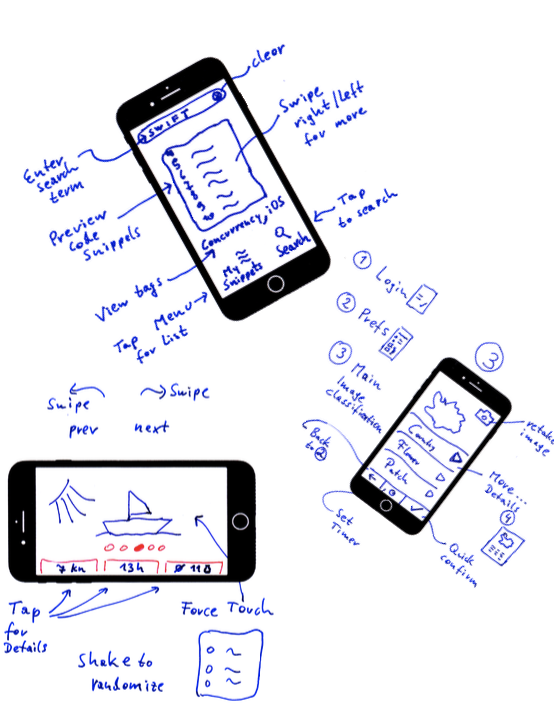 clear
SWIFT
Swipe
right/left
for more
Enter
search
term
Preview
code
Snippets
Concurrency, iOS
Tap
to search
Search
My
Snippets
View tags
Tap Menu
for List
1 Login
2 Prefs
3 Main
Image
classification
3
retake
image
Country
Flower
Patch
Back
to 2
More...
Details
4
Set
Timer
Quick
confirm
Swipe
prev
Swipe
next
7 kn
13h
Tap
for
Details
Force Touch
Shake to
randomize